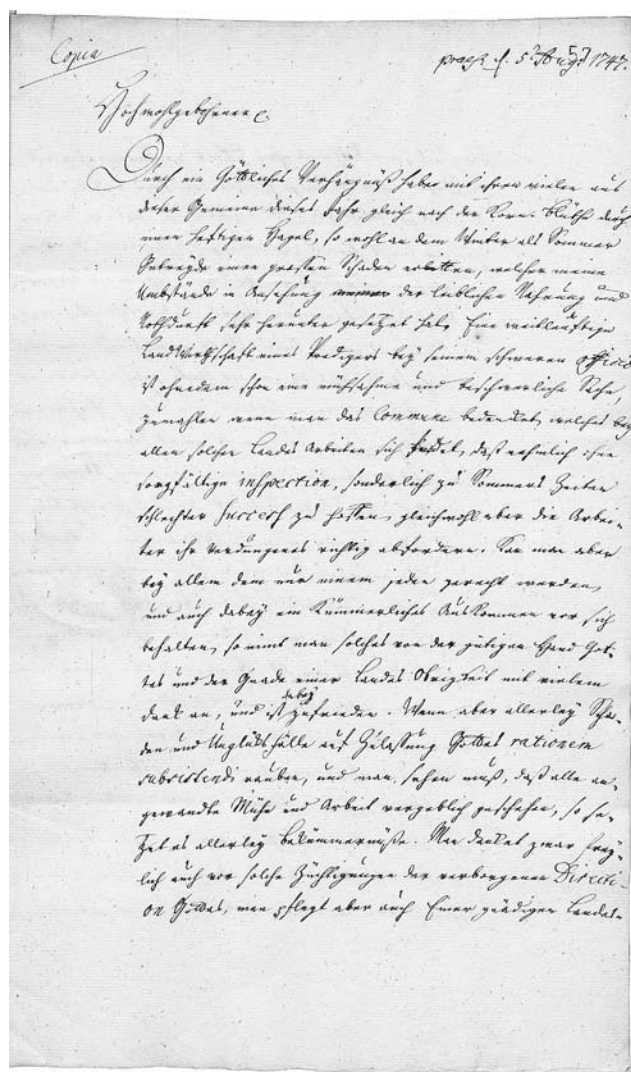 Copia
praes. d. 5. Aug. 1747.
Hochwohlgebohrner
Durch ein Göttliches Verhängniß haben mit ihren vielen aus
dieser Gemeine dieses Jahr gleich nach der Korn-Blüthe durch
einen hefftigen Hagel, so wohl an dem Winter als Sommer
Getreyde einen grossen Schaden erlitten, welcher meine
Umbstände in Ansehung der leiblichen Nahrung und
Nothdurft sehr herunter gesetzet hat. Eine weitläuftige
LandWirthschaft eines Predigers bey seinem schweren officio
ist ohnedem schon eine mühsahme und beschwerliche Sache,
zumahlen wenn man das Commune bedencket, welches bey
allen solchen Landes Arbeiten sich findet, daß nehmlich ohne
sorgfältige inspection, sonderlich zu Sommers Zeiten
schlechter success zu hoffen, gleichwohl aber die Arbei-
ter ihr Verdungenes richtig abfordern. Kan man aber
bey allem dem nur einem jeden gerecht werden,
und auch dabey ein Kümmerliches AusKommen vor sich
behalten, so nimt man solches von der gütigen Hand Got-
tes und der Gnade einer Landes Obrigkeit mit vielem
danck an, und ist dabey zufrieden. Wenn aber allerley Scha-
den und Unglücksfälle auf Zulassung Gottes rationem
subsistendi rauben, und man sehen muß, daß alle an-
gewandte Mühe und Arbeit vergeblich geschehen, so se-
tzet es allerley bekümmernüße. Man dencket zwar frey-
lich auch vor solche Züchtigungen der verborgenen Directi-
on Gottes, man pflegt aber auch Einer gnädigen Landes-